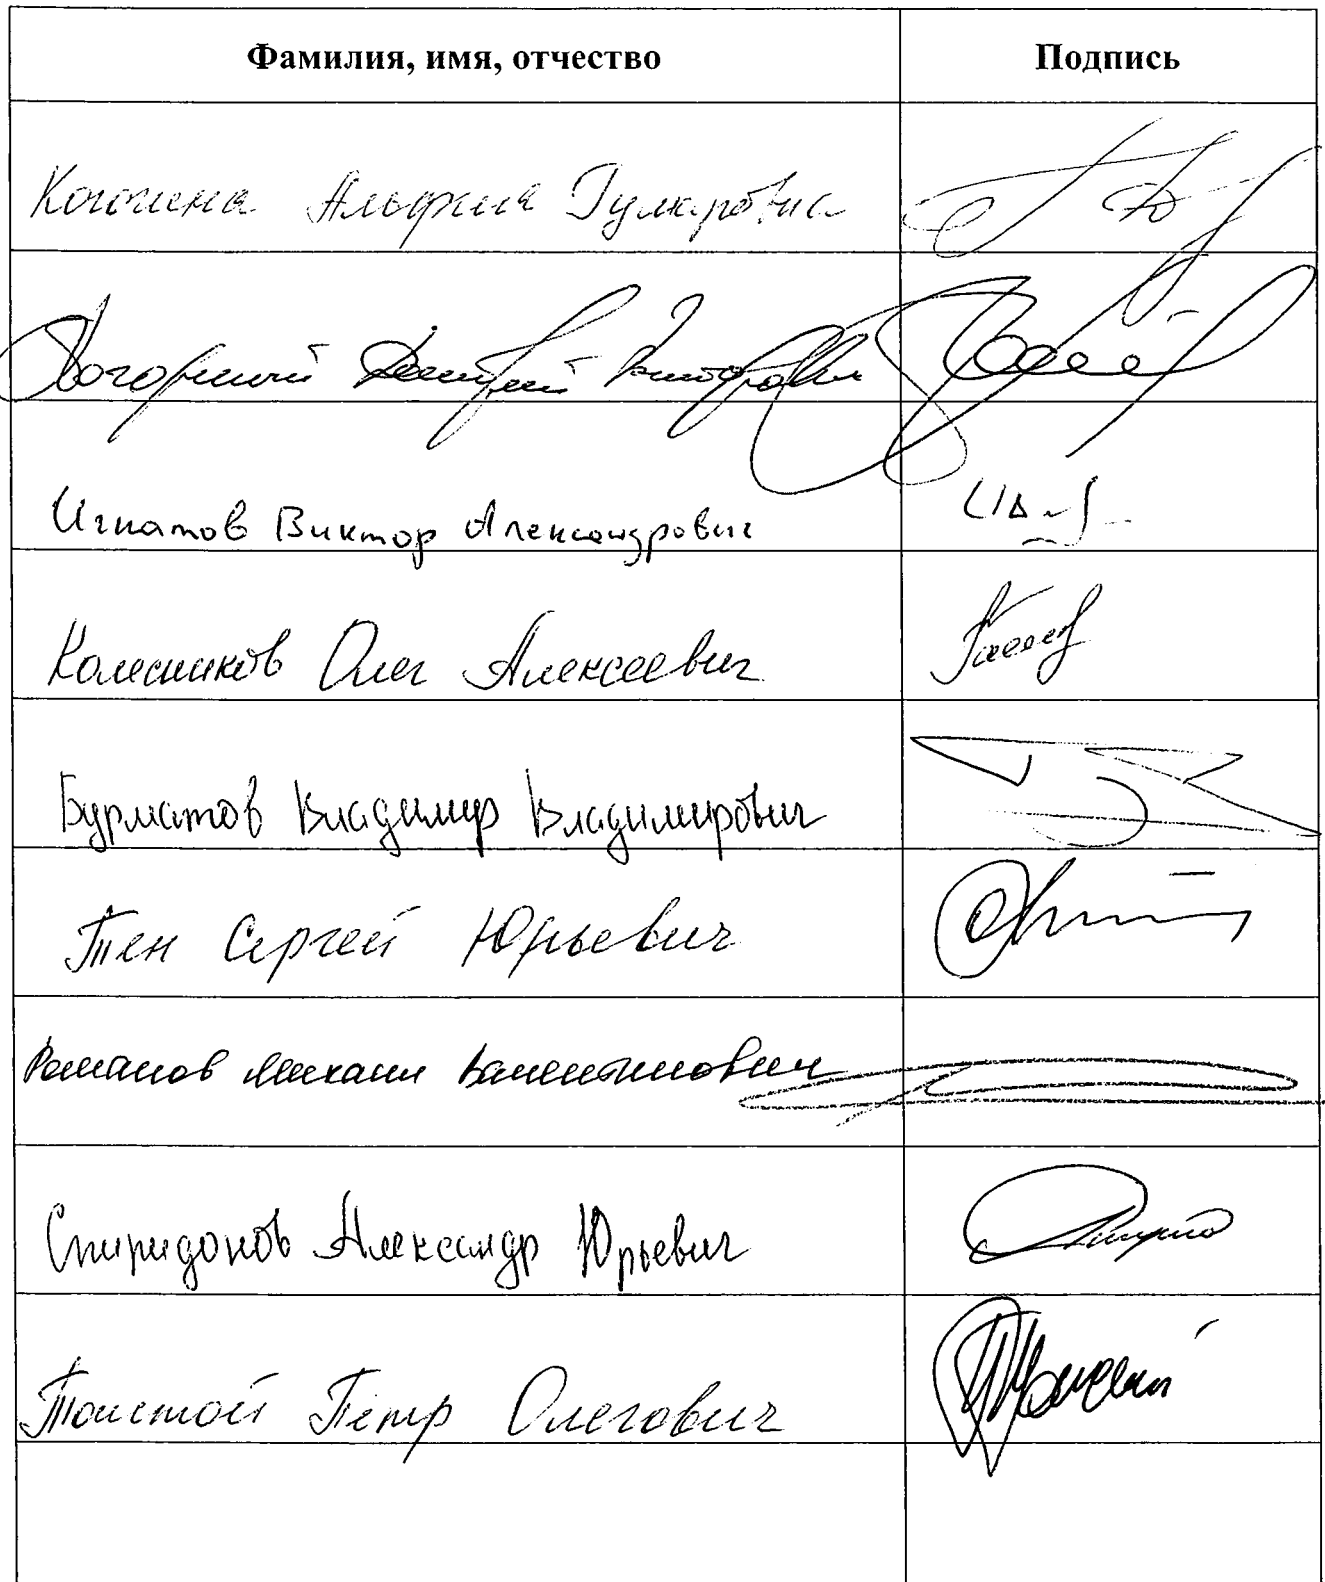 Фамилия, имя, отчество Подпись
Когогина Альфия Гумаровна
Погорелый Дмитрий Викторович
Игнатов Виктор Александрович
Колесников Олег Алексеевич
Бурматов Владимир Владимирович
Тен Сергей Юрьевич
Романов Михаил Валентинович
Спиридонов Александр Юрьевич
Толстой Пётр Олегович